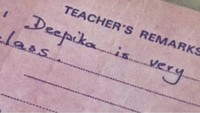 TEACHER'S REMARKS
Deepika is very
class.